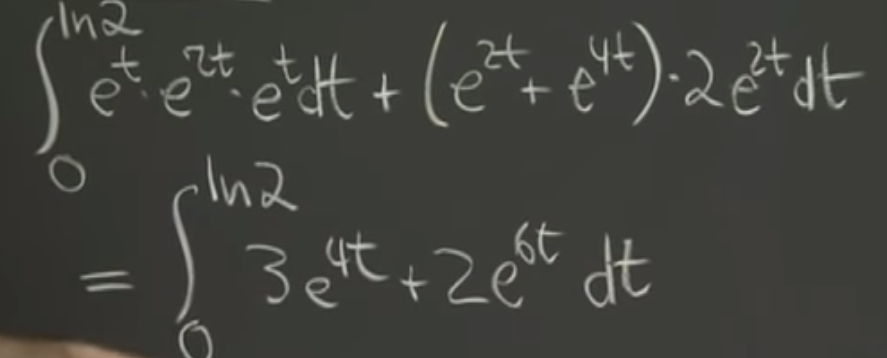 ∫₀^{ln2} e^t · e^{2t} · e^t dt + (e^{2t} + e^{4t}) · 2e^{2t} dt
= ∫₀^{ln2} 3e^{4t} + 2e^{6t} dt